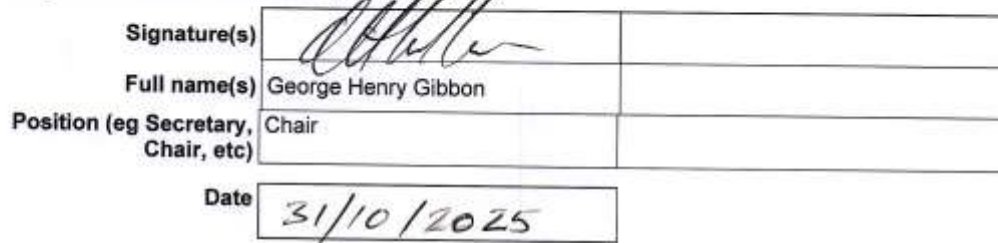 Signature(s)
Full name(s) George Henry Gibbon
Position (eg Secretary, Chair
Chair, etc)
Date 31/10/2025